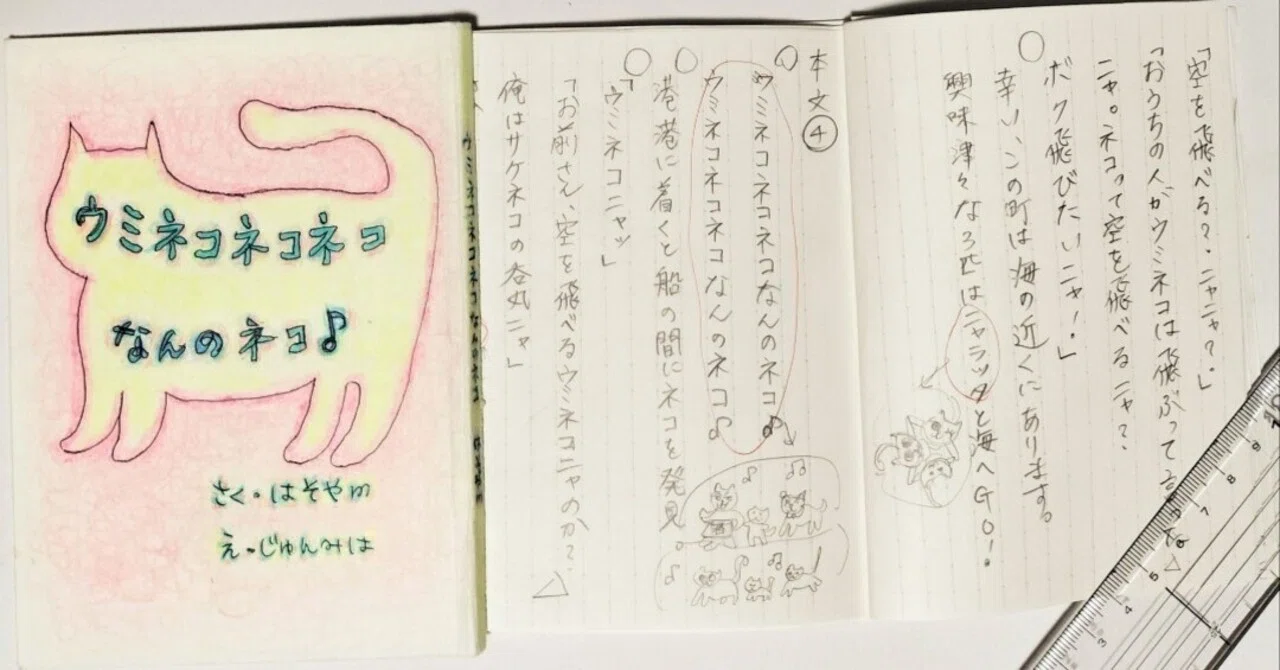 ウミネコネコネコ
なんのネコ♪
さく・はそやm
え・じゅんみは
ウミネコネコネコなんのネコ
「空を飛べる?ニャニャ?」
「おうちの人がウミネコは飛ぶってる
ニャ。ネコって空を飛べるニャ?
ボク飛びたいニャ!」
幸い、この町は海の近くにあります。
興味津々な3匹はニャラッタと海へGO!
本文④
ウミネコネコネコなんのネコ♪
ウミネコネコネコなんのネコ♪
港港に着くと船の間にネコを発見。
「ウミネコニャッ」
「お前さん、空を飛べるウミネコニャのか?
俺はサケネコの呑丸ニャ」